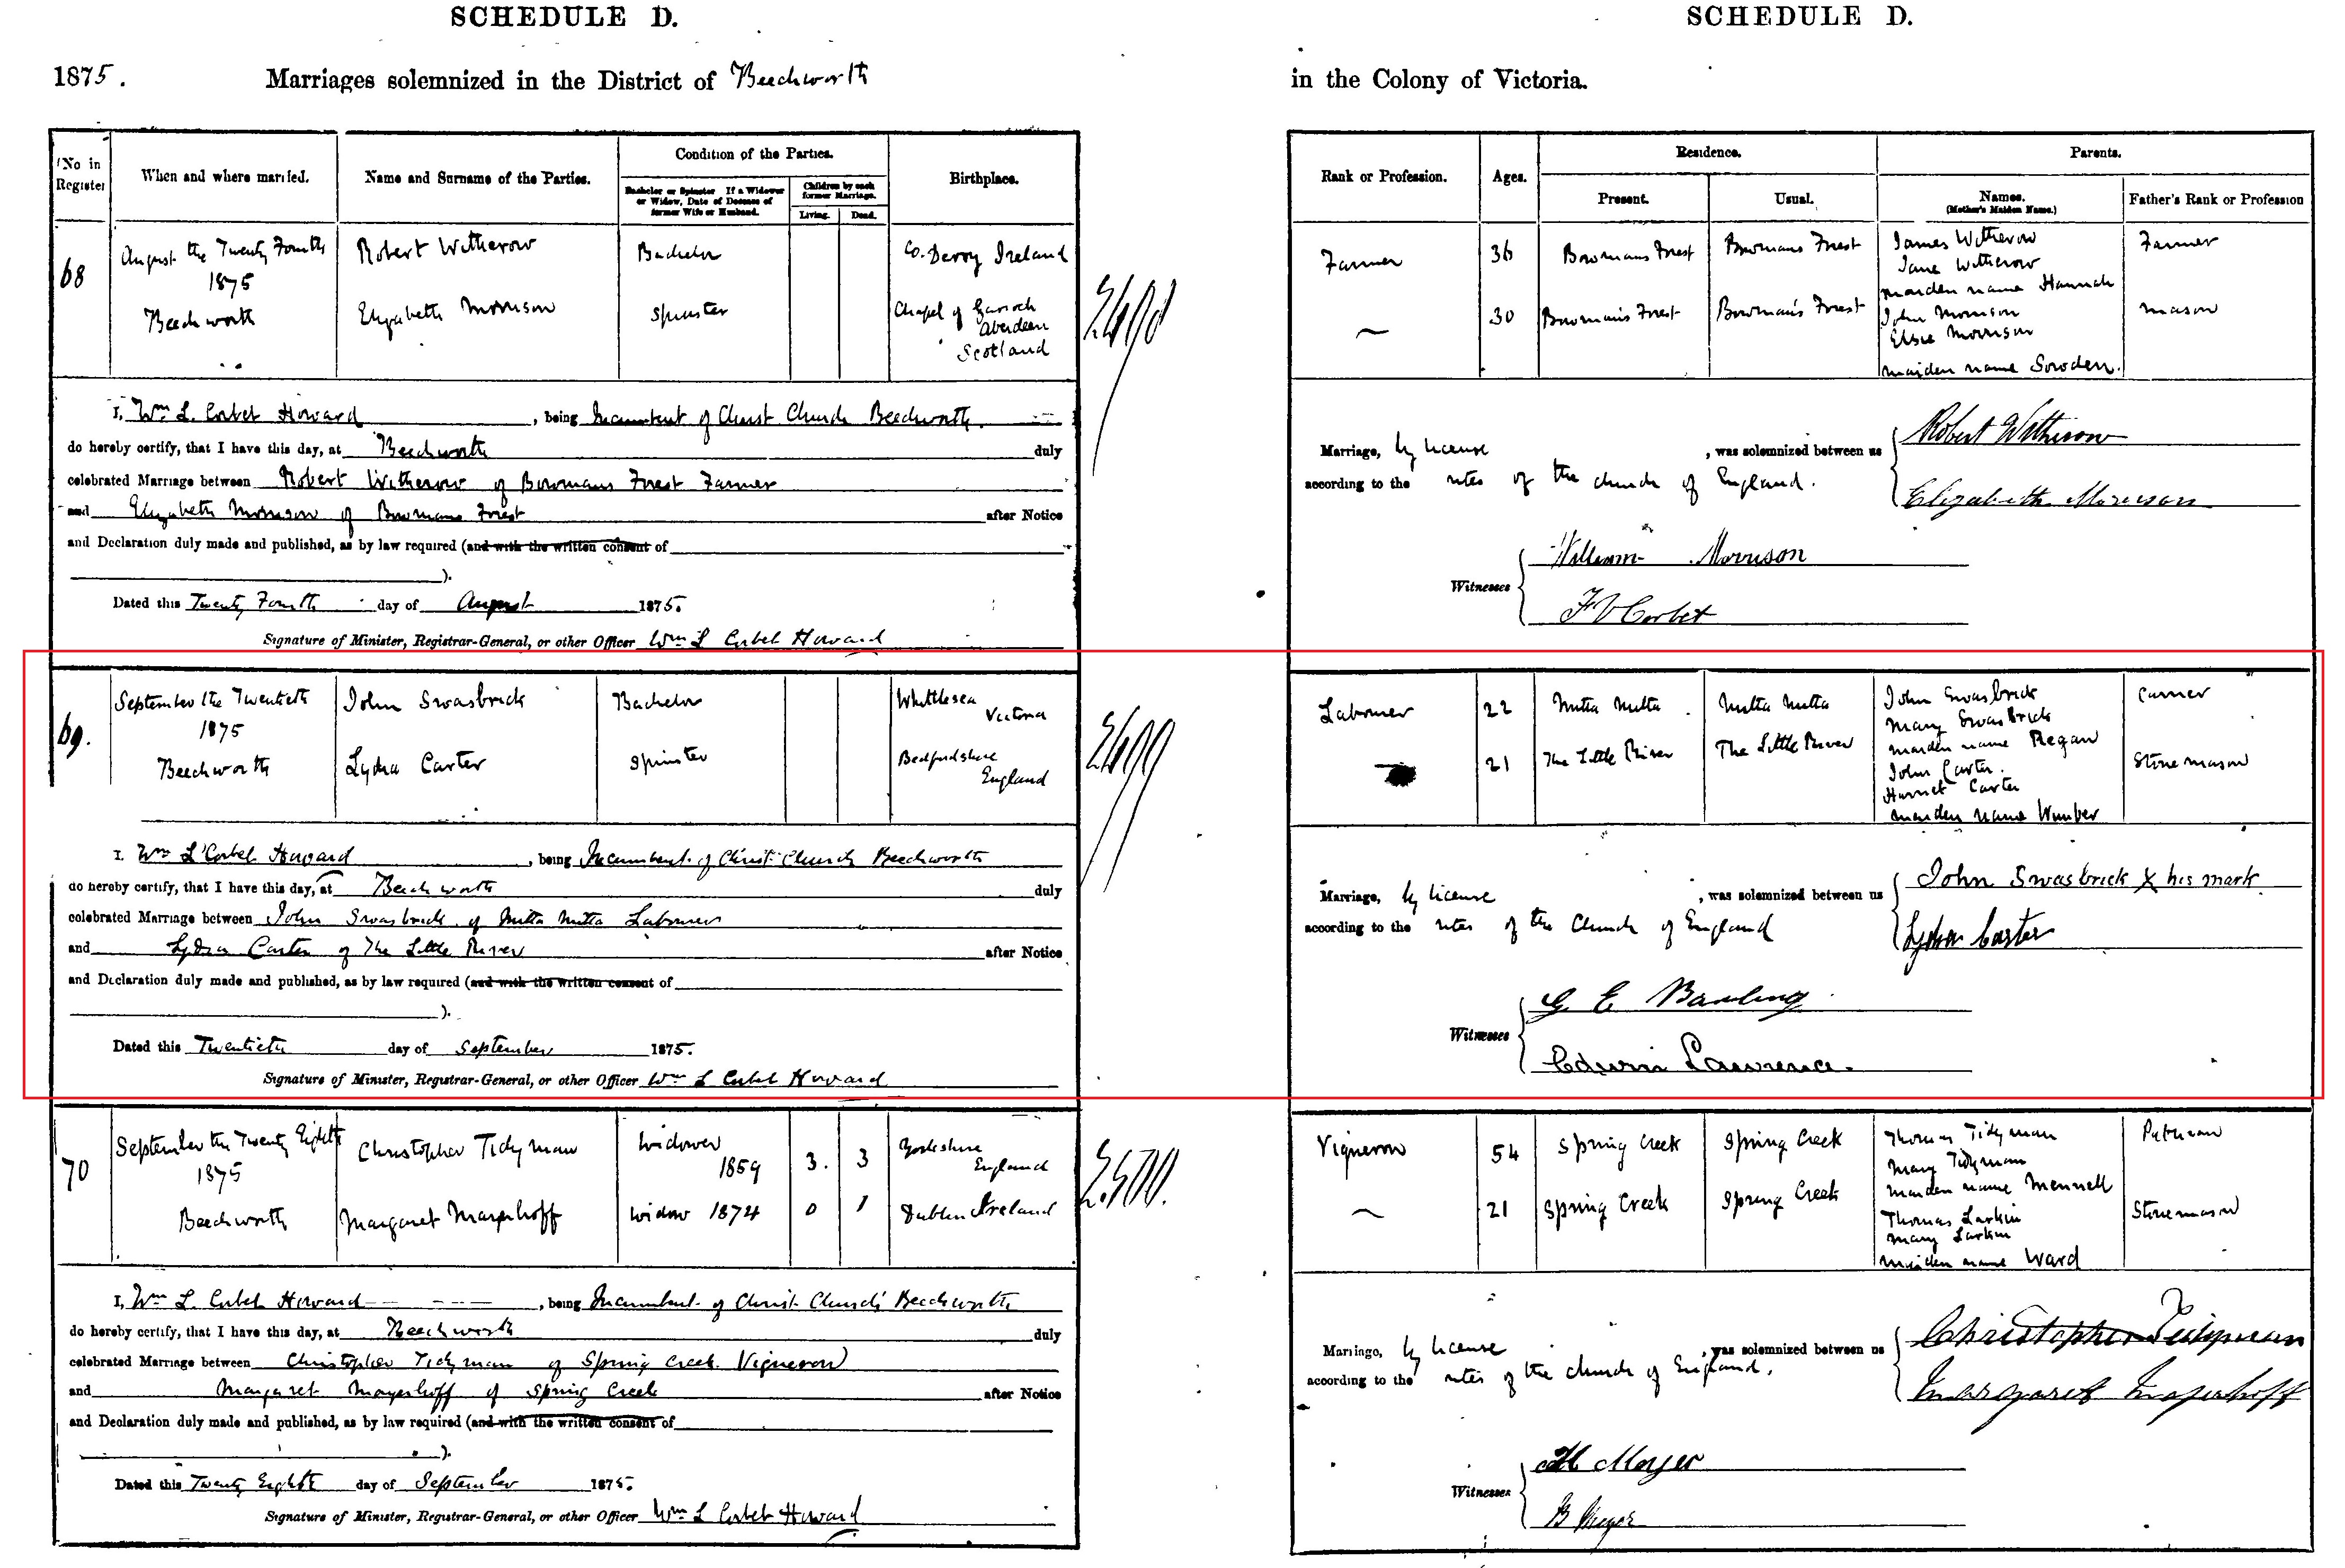 SCHEDULE D.
1875. Marriages solemnized in the District of Beechworth
No in Register
When and where married.
Name and Surname of the Parties.
Condition of the Parties.
Bachelor or Spinster If a Widower or Widow, Date of Decease of former Wife or Husband.
Children by each former Marriage.
Living. Dead.
Birthplace.
68
August the Twenty Fourth
1875
Beechworth
Robert Witherow
Elizabeth Morrison
Bachelor
Spinster
Co. Derry Ireland
Chapel of Garioch
Aberdeen
Scotland
2498
I, Wm L. Corbet Howard, being Incumbent of Christ Church Beechworth.
do hereby certify, that I have this day, at Beechworth duly
celebrated Marriage between Robert Witherow of Bowmans Forest Farmer
and Elizabeth Morrison of Bowmans Forest after Notice
and Declaration duly made and published, as by law required (and with the written consent of
).
Dated this Twenty Fourth day of August 1875.
Signature of Minister, Registrar-General, or other Officer Wm L Corbet Howard
69.
September the Twentieth
1875
Beechworth
John Swasbrick
Lydia Carter
Bachelor
Spinster
Whittlesea
Victoria
Bedfordshire
England
2499
I, Wm L Corbet Howard, being Incumbent of Christ Church Beechworth
do hereby certify, that I have this day, at Beechworth duly
celebrated Marriage between John Swasbrick of Mitta Mitta Labourer
and Lydia Carter of The Little River after Notice
and Declaration duly made and published, as by law required (and with the written consent of
).
Dated this Twentieth day of September 1875.
Signature of Minister, Registrar-General, or other Officer Wm L Corbet Howard
70
September the Twenty Eighth
1875
Beechworth
Christopher Tidyman
Margaret Mayerhoff
Widower
1859
Widow 1874
3. 3
0 1
Yorkshire
England
Dublin Ireland
2500.
I, Wm L. Corbet Howard, being Incumbent of Christ Church Beechworth
do hereby certify, that I have this day, at Beechworth duly
celebrated Marriage between Christopher Tidyman of Spring Creek Vigneron
and Margaret Mayerhoff of Spring Creek after Notice
and Declaration duly made and published, as by law required (and with the written consent of
).
Dated this Twenty Eighth day of September 1875.
Signature of Minister, Registrar-General, or other Officer Wm L Corbet Howard
SCHEDULE D.
in the Colony of Victoria.
Rank or Profession.
Ages.
Residence.
Present. Usual.
Parents.
Names.
(Mother's Maiden Name.)
Father's Rank or Profession
Farmer
36
30
Bowmans Forest
Bowmans Forest
Bowmans Forest
Bowman's Forest
James Witherow
Jane Witherow
maiden name Hannah
John Morrison
Elsie Morrison
maiden name Sowden.
Farmer
Mason
Marriage, by license, was solemnized between us
according to the rites of the church of England.
Robert Witherow
Elizabeth Morrison
Witnesses
William Morrison
F V Corbet
Labourer
22
21
Mitta Mitta
The Little River
Mitta Mitta
The Little River
John Swasbrick
Mary Swasbrick
maiden name Regan
John Carter.
Harriet Carter
maiden name Wimber
Carrier
Stone mason
Marriage, by license, was solemnized between us
according to the rites of the Church of England
John Swasbrick X his mark.
Lydia Carter
Witnesses
G E Barling
Edwin Lawrence.
Vigneron
54
21
Spring Creek
Spring Creek
Spring Creek
Spring Creek
Thomas Tidyman
Mary Tidyman
maiden name Mennell
Thomas Larkin
Mary Larkin
maiden name Ward
Stone mason
Marriage, by license, was solemnized between us
according to the rites of the church of England.
Christopher Tidyman
Margaret Mayerhoff
Witnesses
Meyer
B Meyer